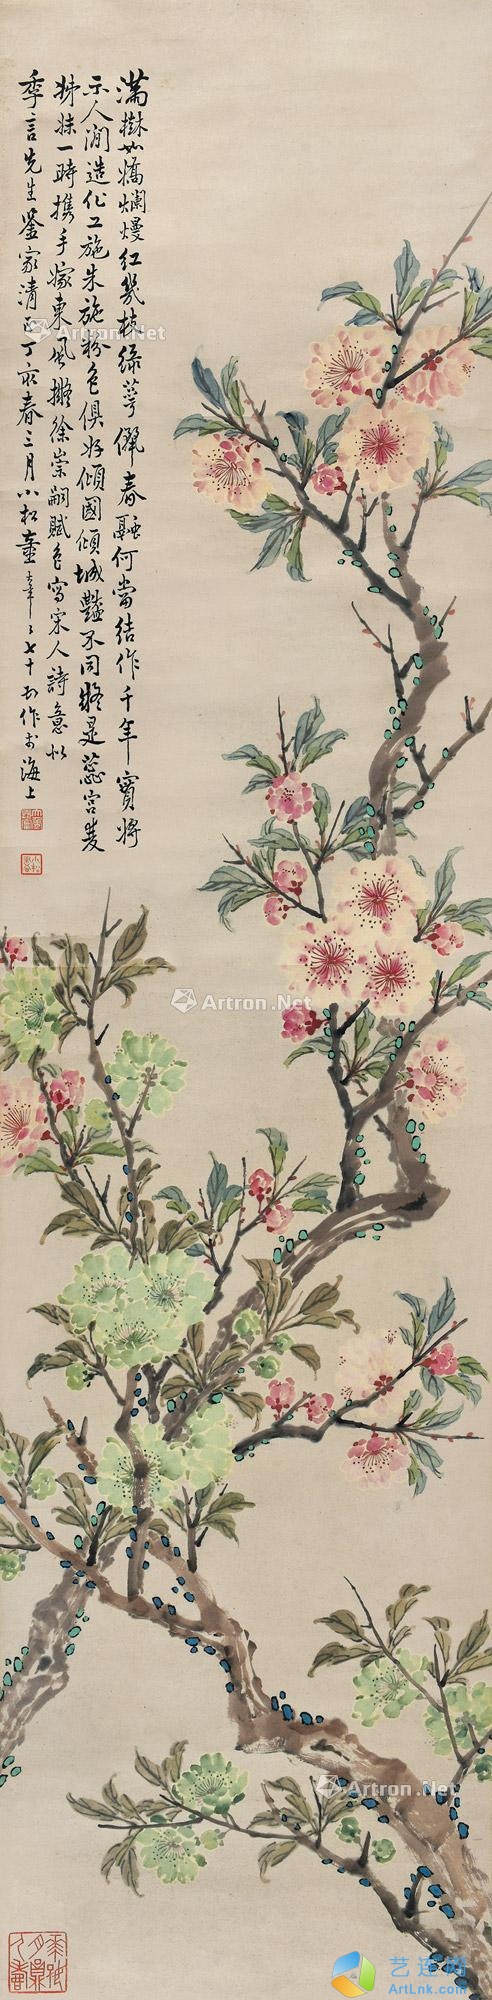 滿樹如嬌爛熳紅幾枝綠萼儷春融何當結作千年實將
示人間造化工施朱施粉色俱好傾國傾城艷不同疑是蕊宮雙
姊妹一時携手嫁東風擬徐崇嗣賦色寫宋人詩意似
季言先生鉴家清
丁亥春三月小松童
年七十
作于海上
Artron.Net
Artron.Net
Artron.Net
Artron.Net
艺连网
ArtLnk.com